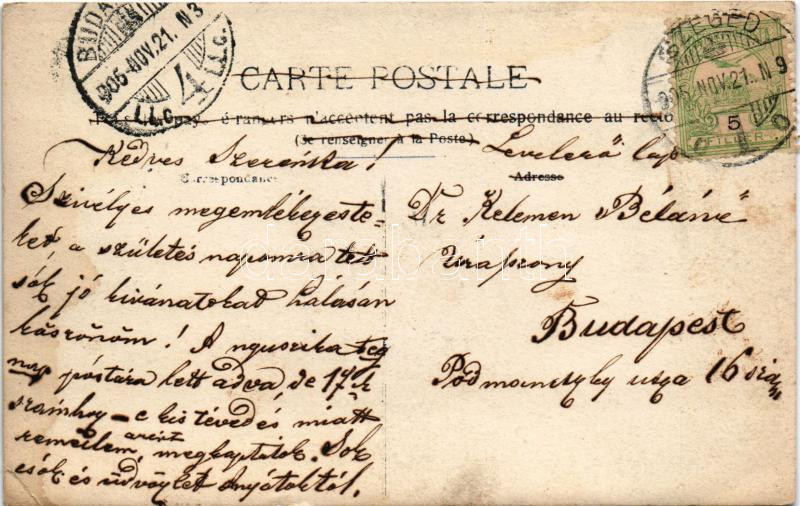 BUDA
905 NOV. 21. N 3
4
I.L.C. I.L.C.
SZEGED
905 NOV. 21. N 9
5
FILLÉR
CARTE POSTALE
pays étrangers n'acceptent pas la correspondance au recto
(Se renseigner à la Poste)
Correspondance
Adresse
Kedves Szerenka!
Szivélyes megemlékezéste=
ket, a születés napomra tett
sok jó kivánatokat hálásan
köszönöm! A nyuszika teg
nap póstára lett adva, de 17-k
számhoz – e kis tévedés miatt
remeilem, azért megkaptátok. Sok
csók és üdvözlet anyátoktól.
Levelező lap
Dr Kelemen Béláné
úrasszony
Budapest
Podmaniczky utza 16 szám
darabanth